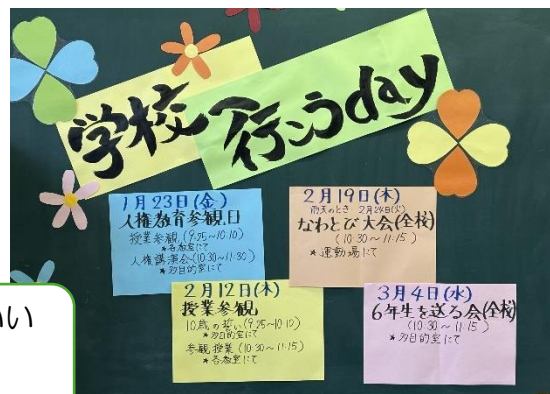 学校へ行こうday
1月23日(金)
人権教育参観日
授業参観(9:25~10:10)
*各教室にて
人権講演会(10:30~11:30)
*多目的室にて
2月19日(木)
雨天のとき 2月24日(火)
なわとび大会(全校)
(10:30~11:15)
*運動場にて
2月12日(木)
授業参観
10歳の誓い(9:25~10:10)
*多目的室にて
参観授業(10:30~11:15)
*各教室にて
3月4日(水)
6年生を送る会(全校)
(10:30~11:15)
*多目的室にて
い